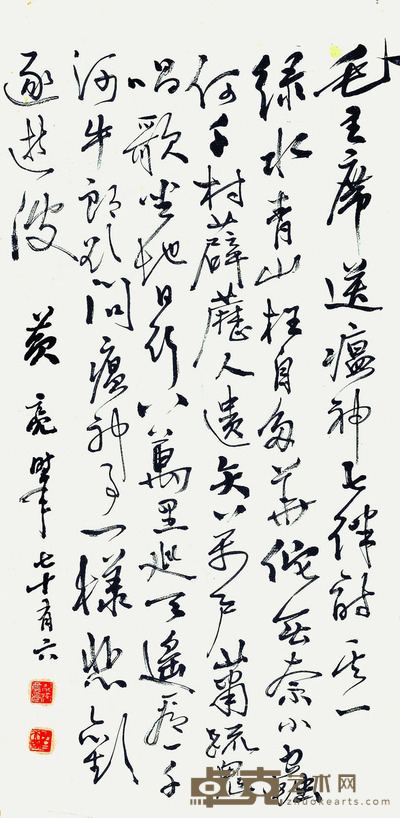 毛主席送瘟神七律詩其一
绿水青山枉自多華佗無奈小蟲
何千村薜藶人遺矢万户蕭疏鬼
唱歌坐地日行八萬里巡天遙看一千
河牛郎欲問瘟神事一樣悲歡
逐逝波
黄亮時年七十有六
卓克艺术网
zhuokearts.com